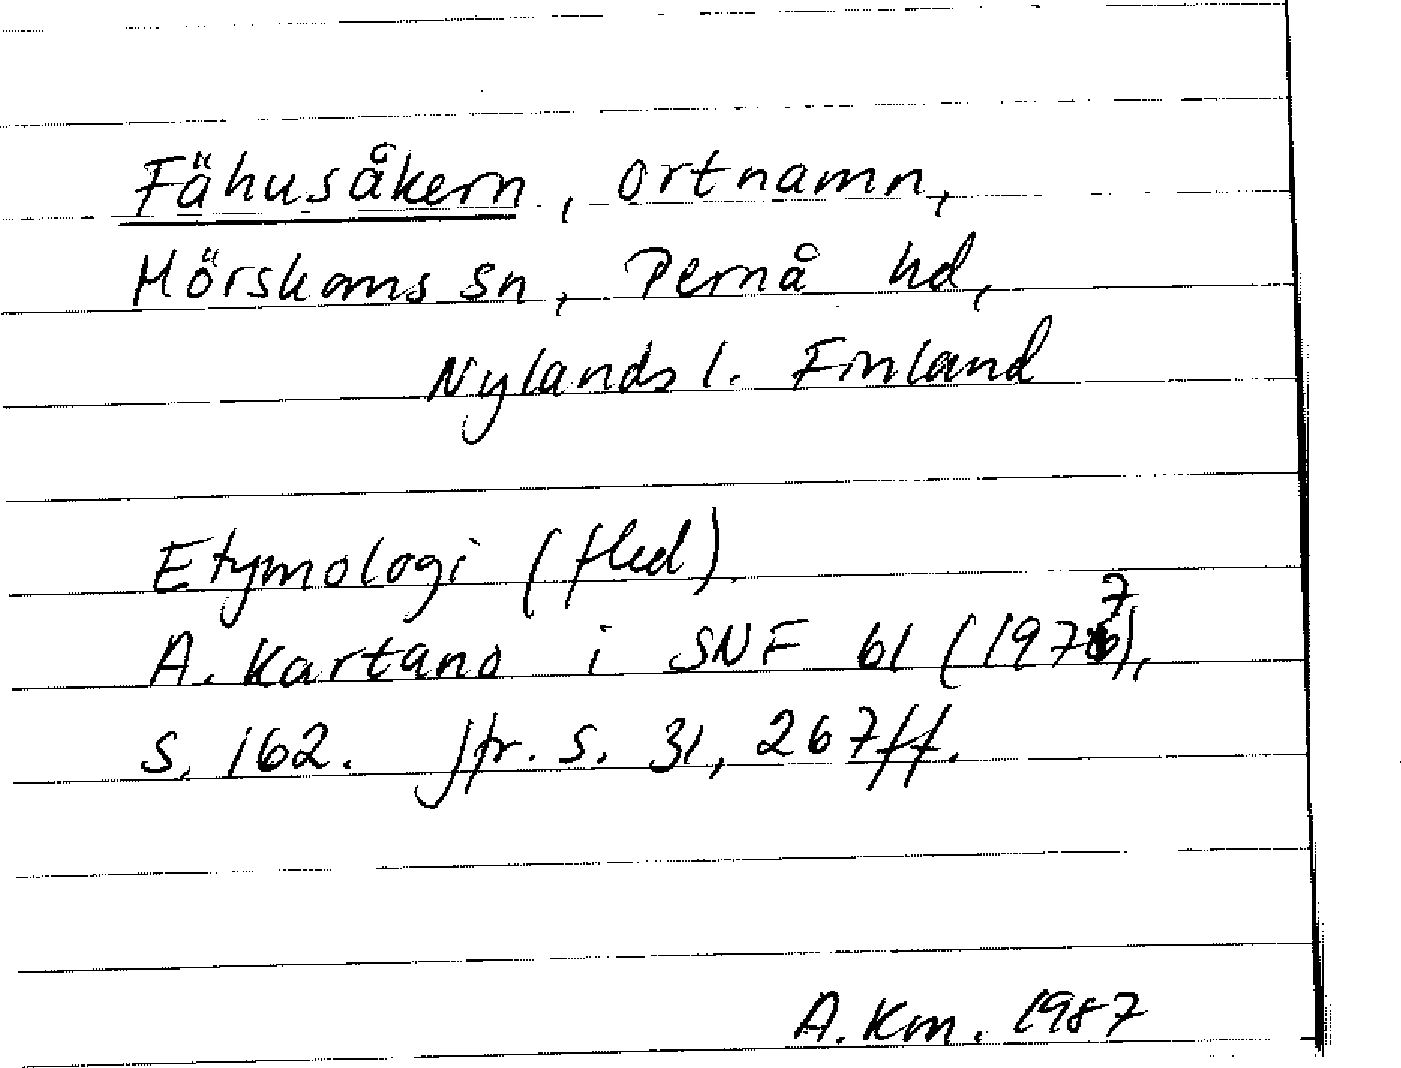 Fähusåkern, ortnamn,
Mörskoms sn, Pernå hd,
Nylands l. Finland
Etymologi (fled).
A. Kartano i SNF 61 (1977),
s. 162. Jfr. s. 31, 267ff.
A. Km. 1987